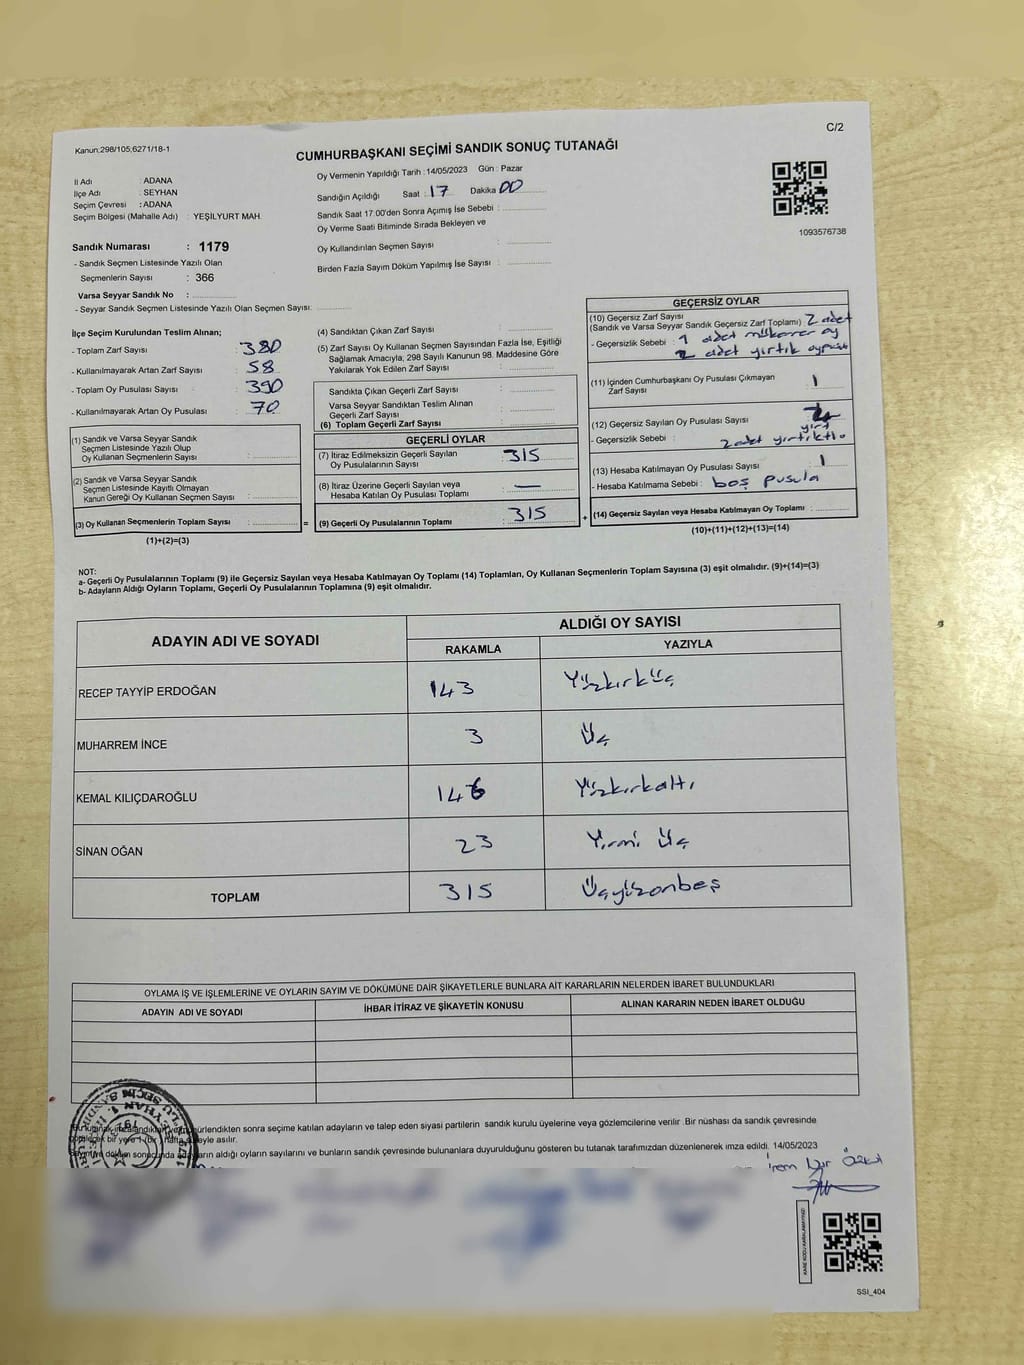 C/2
Kanun;298/105;6271/18-1
CUMHURBAŞKANI SEÇİMİ SANDIK SONUÇ TUTANAĞI
İl Adı : ADANA
İlçe Adı : SEYHAN
Seçim Çevresi : ADANA
Seçim Bölgesi (Mahalle Adı) : YEŞİLYURT MAH.
Sandık Numarası : 1179
- Sandık Seçmen Listesinde Yazılı Olan
Seçmenlerin Sayısı : 366
Varsa Seyyar Sandık No :
- Seyyar Sandık Seçmen Listesinde Yazılı Olan Seçmen Sayısı:
Oy Vermenin Yapıldığı Tarih : 14/05/2023 Gün : Pazar
Sandığın Açıldığı Saat : 17 Dakika 00
Sandık Saat 17:00'den Sonra Açımış İse Sebebi :
Oy Verme Saati Bitiminde Sırada Bekleyen ve
Oy Kullandırılan Seçmen Sayısı :
Birden Fazla Sayım Döküm Yapılmış İse Sayısı :
1093576738
İlçe Seçim Kurulundan Teslim Alınan;
- Toplam Zarf Sayısı : 380
- Kullanılmayarak Artan Zarf Sayısı : 58
- Toplam Oy Pusulası Sayısı : 390
- Kullanılmayarak Artan Oy Pusulası : 70
(1) Sandık ve Varsa Seyyar Sandık
Seçmen Listesinde Yazılı Olup
Oy Kullanan Seçmenlerin Sayısı :
(2) Sandık ve Varsa Seyyar Sandık
Seçmen Listesinde Kayıtlı Olmayan
Kanun Gereği Oy Kullanan Seçmen Sayısı :
(3) Oy Kullanan Seçmenlerin Toplam Sayısı : =
(1)+(2)=(3)
(4) Sandıktan Çıkan Zarf Sayısı :
(5) Zarf Sayısı Oy Kullanan Seçmen Sayısından Fazla İse, Eşitliği
Sağlamak Amacıyla, 298 Sayılı Kanunun 98. Maddesine Göre
Yakılarak Yok Edilen Zarf Sayısı :
Sandıkta Çıkan Geçerli Zarf Sayısı :
Varsa Seyyar Sandıktan Teslim Alınan
Geçerli Zarf Sayısı :
(6) Toplam Geçerli Zarf Sayısı :
GEÇERLİ OYLAR
(7) İtiraz Edilmeksizin Geçerli Sayılan
Oy Pusulalarının Sayısı : 315
(8) İtiraz Üzerine Geçerli Sayılan veya
Hesaba Katılan Oy Pusulası Toplamı : —
(9) Geçerli Oy Pusulalarının Toplamı : 315 +
GEÇERSİZ OYLAR
(10) Geçersiz Zarf Sayısı 2 adet
(Sandık ve Varsa Seyyar Sandık Geçersiz Zarf Toplamı) :
- Geçersizlik Sebebi : 1 adet mükerrer oy
2 adet yırtık
(11) İçinden Cumhurbaşkanı Oy Pusulası Çıkmayan
Zarf Sayısı : 1
(12) Geçersiz Sayılan Oy Pusulası Sayısı :
- Geçersizlik Sebebi : 2 adet
(13) Hesaba Katılmayan Oy Pusulası Sayısı : 1
- Hesaba Katılmama Sebebi : boş pusula
(14) Geçersiz Sayılan veya Hesaba Katılmayan Oy Toplamı :
(10)+(11)+(12)+(13)=(14)
NOT:
a- Geçerli Oy Pusulalarının Toplamı (9) ile Geçersiz Sayılan veya Hesaba Katılmayan Oy Toplamı (14) Toplamları, Oy Kullanan Seçmenlerin Toplam Sayısına (3) eşit olmalıdır. (9)+(14)=(3)
b- Adayların Aldığı Oyların Toplamı, Geçerli Oy Pusulalarının Toplamına (9) eşit olmalıdır.
ADAYIN ADI VE SOYADI
ALDIĞI OY SAYISI
RAKAMLA YAZIYLA
RECEP TAYYİP ERDOĞAN 143 Yüzkırküç
MUHARREM İNCE 3 Üç
KEMAL KILIÇDAROĞLU 146 Yüzkırkaltı
SİNAN OĞAN 23 Yirmi Üç
TOPLAM 315 Üçyüzonbeş
OYLAMA İŞ VE İŞLEMLERİNE VE OYLARIN SAYIM VE DÖKÜMÜNE DAİR ŞİKAYETLERLE BUNLARA AİT KARARLARIN NELERDEN İBARET BULUNDUKLARI
ADAYIN ADI VE SOYADI İHBAR İTİRAZ VE ŞİKAYETİN KONUSU ALINAN KARARIN NEDEN İBARET OLDUĞU
sonra seçime katılan adayların ve talep eden siyasi partilerin sandık kurulu üyelerine veya gözlemcilerine verilir. Bir nüshası da sandık çevresinde
bir yere 1 (bir) hafta asılır.
aldığı oyların sayılarını ve bunların sandık çevresinde bulunanlara duyurulduğunu gösteren bu tutanak tarafımızdan düzenlenerek imza edildi. 14/05/2023
KARE KODU KARALAMAYINIZ!
SSI_404